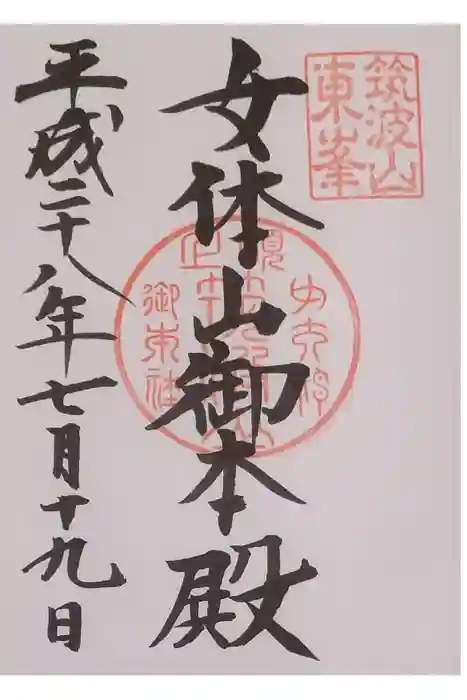 筑波山
東峯
女体山御本殿
御本社
平成二十八年七月十九日